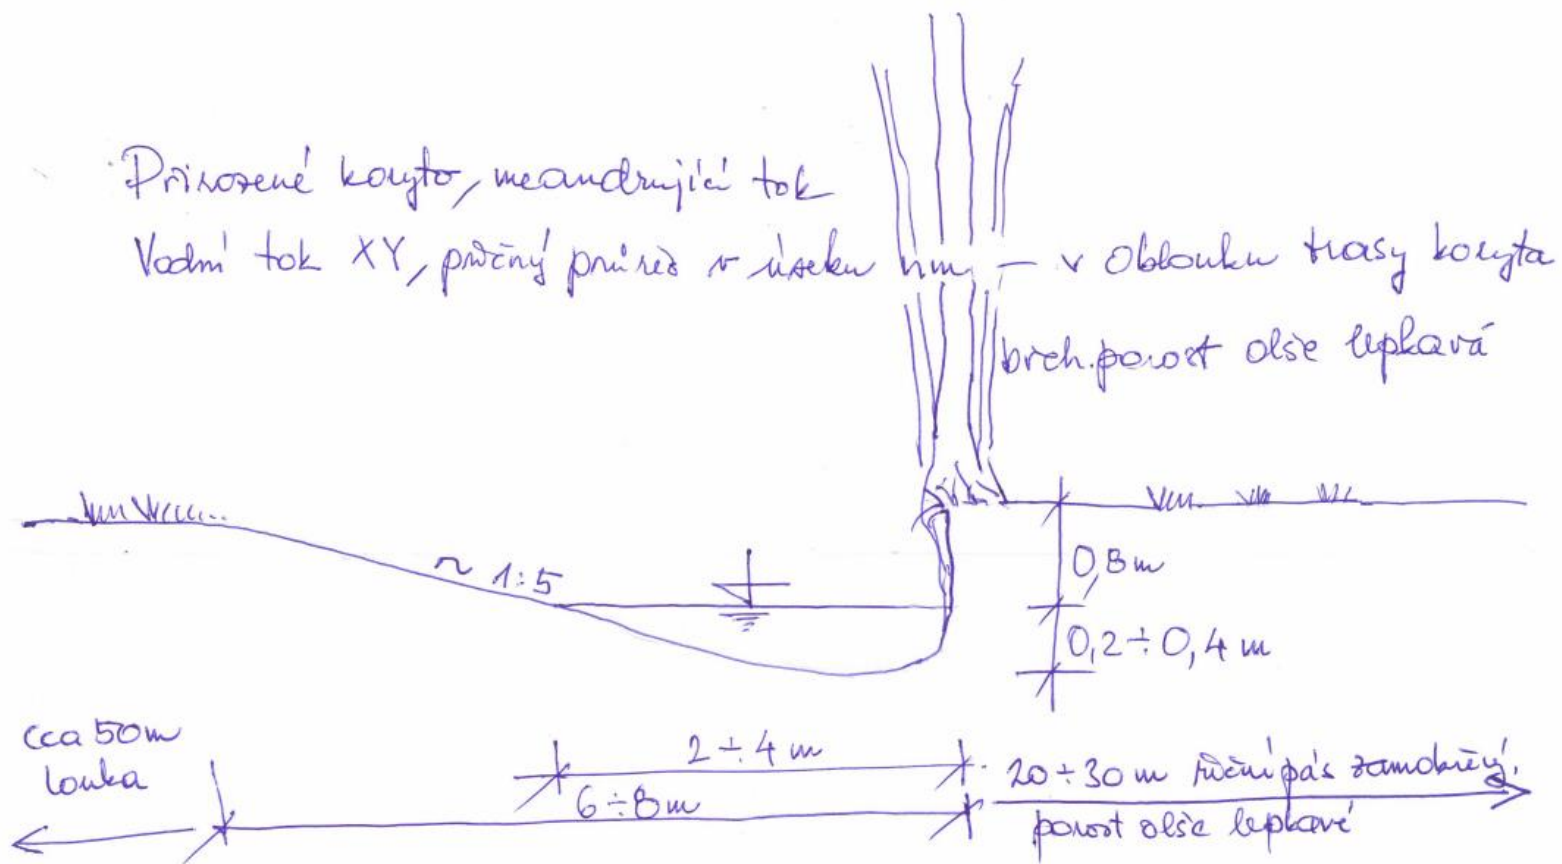 Přirozené koryto, meandrující tok
Vodní tok XY, příčný průřez v úseku hm – v oblouku trasy koryta
břeh. porost olše lepkavá
~ 1:5
0,8 m
0,2 ÷ 0,4 m
cca 50 m
louka
2 ÷ 4 m
6 ÷ 8 m
20 ÷ 30 m říční pás zamokřený,
porost olše lepkavé